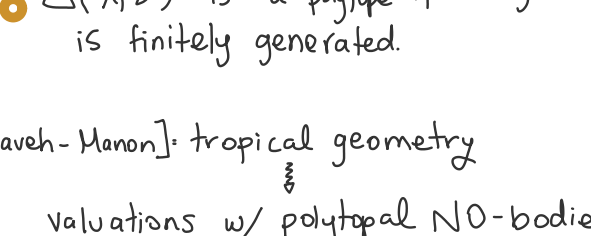 is a polytope
is finitely generated.
aveh-Manon]: tropical geometry
valuations w/ polytopal NO-bodie